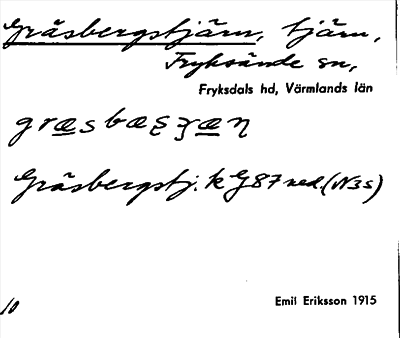 Gräsbergstjärn, tjärn,
Fryksände sn,
Fryksdals hd, Värmlands län
Gräsbergstj. k G87 ned. (N3s)
Emil Eriksson 1915
10